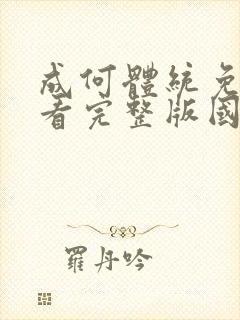 成何體統免
看完整版國
羅丹吟